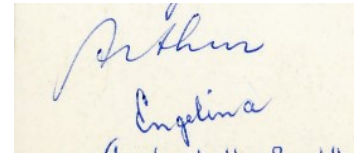 Arthur
Engelina